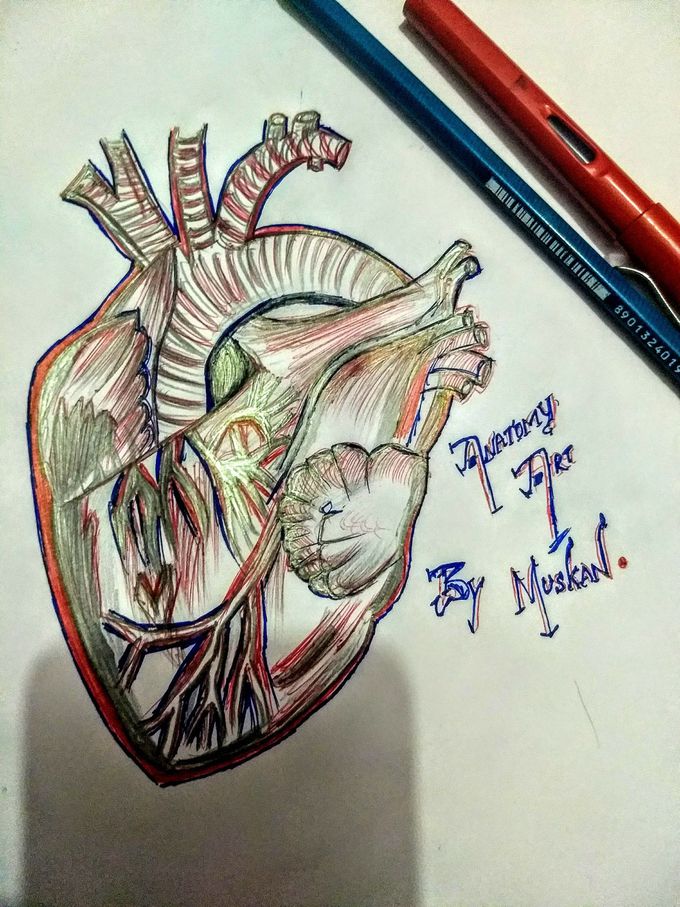 ANATOMY
ART
BY MUSKAN.
8901324019